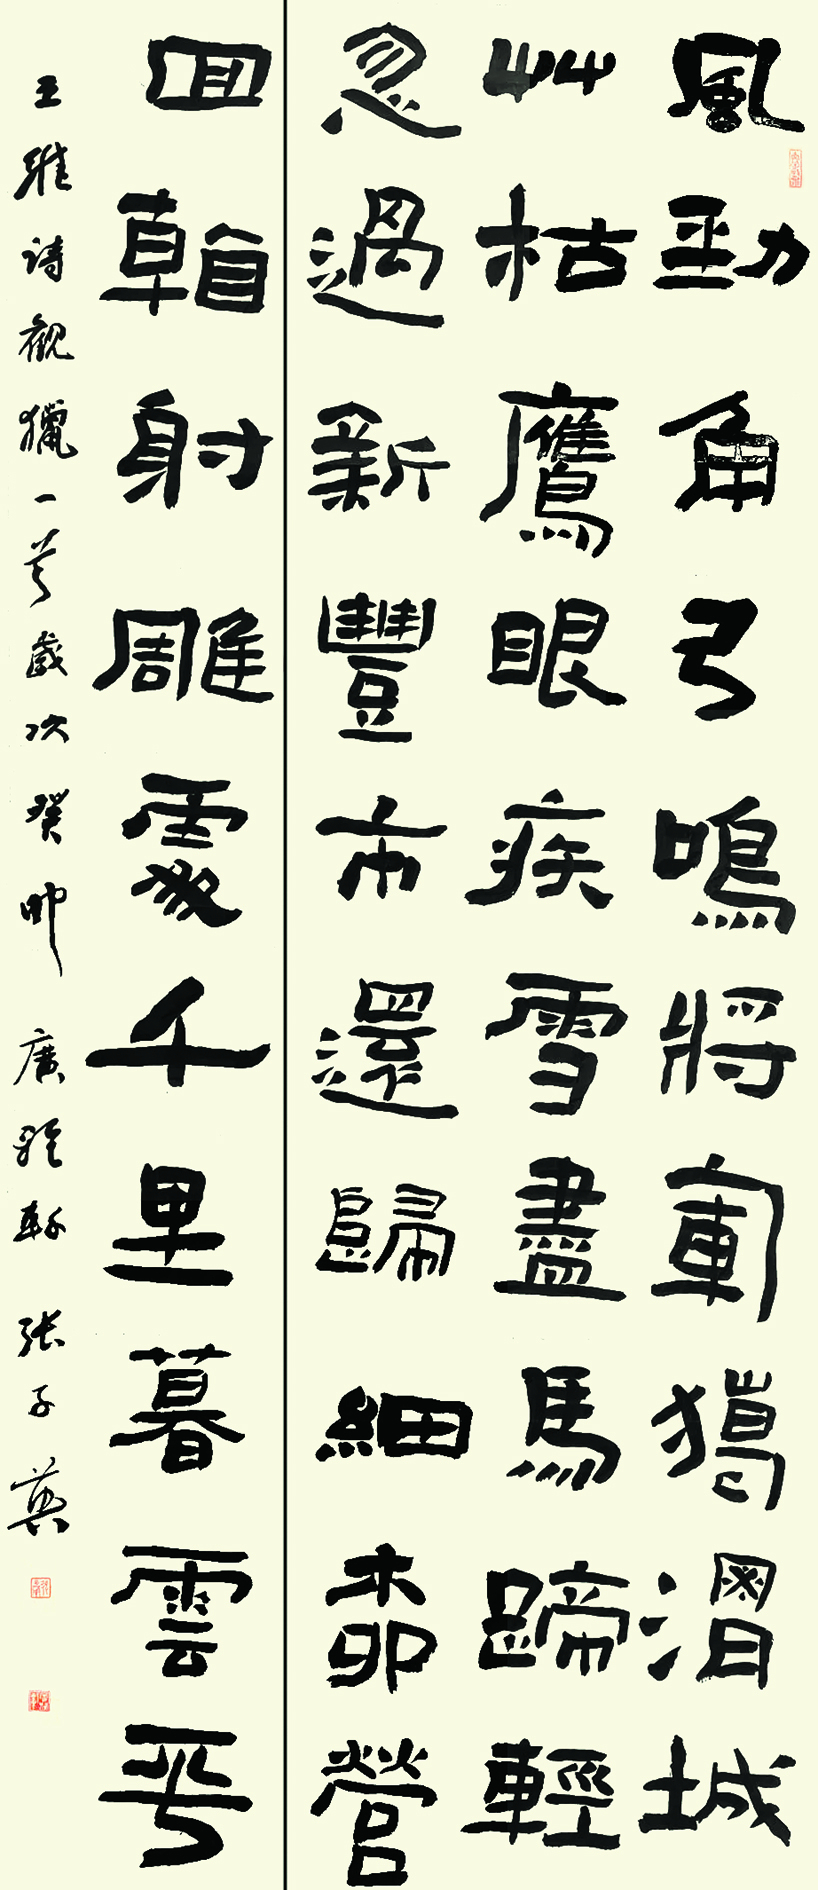 風勁角弓鳴將軍獦渭城
艸枯鷹眼疾雪盡馬蹄輕
忽過新豐市還歸細桺營
回看射雕處千里暮雲平
王維詩觀獵一首歲次癸卯 廣雅軒 張子